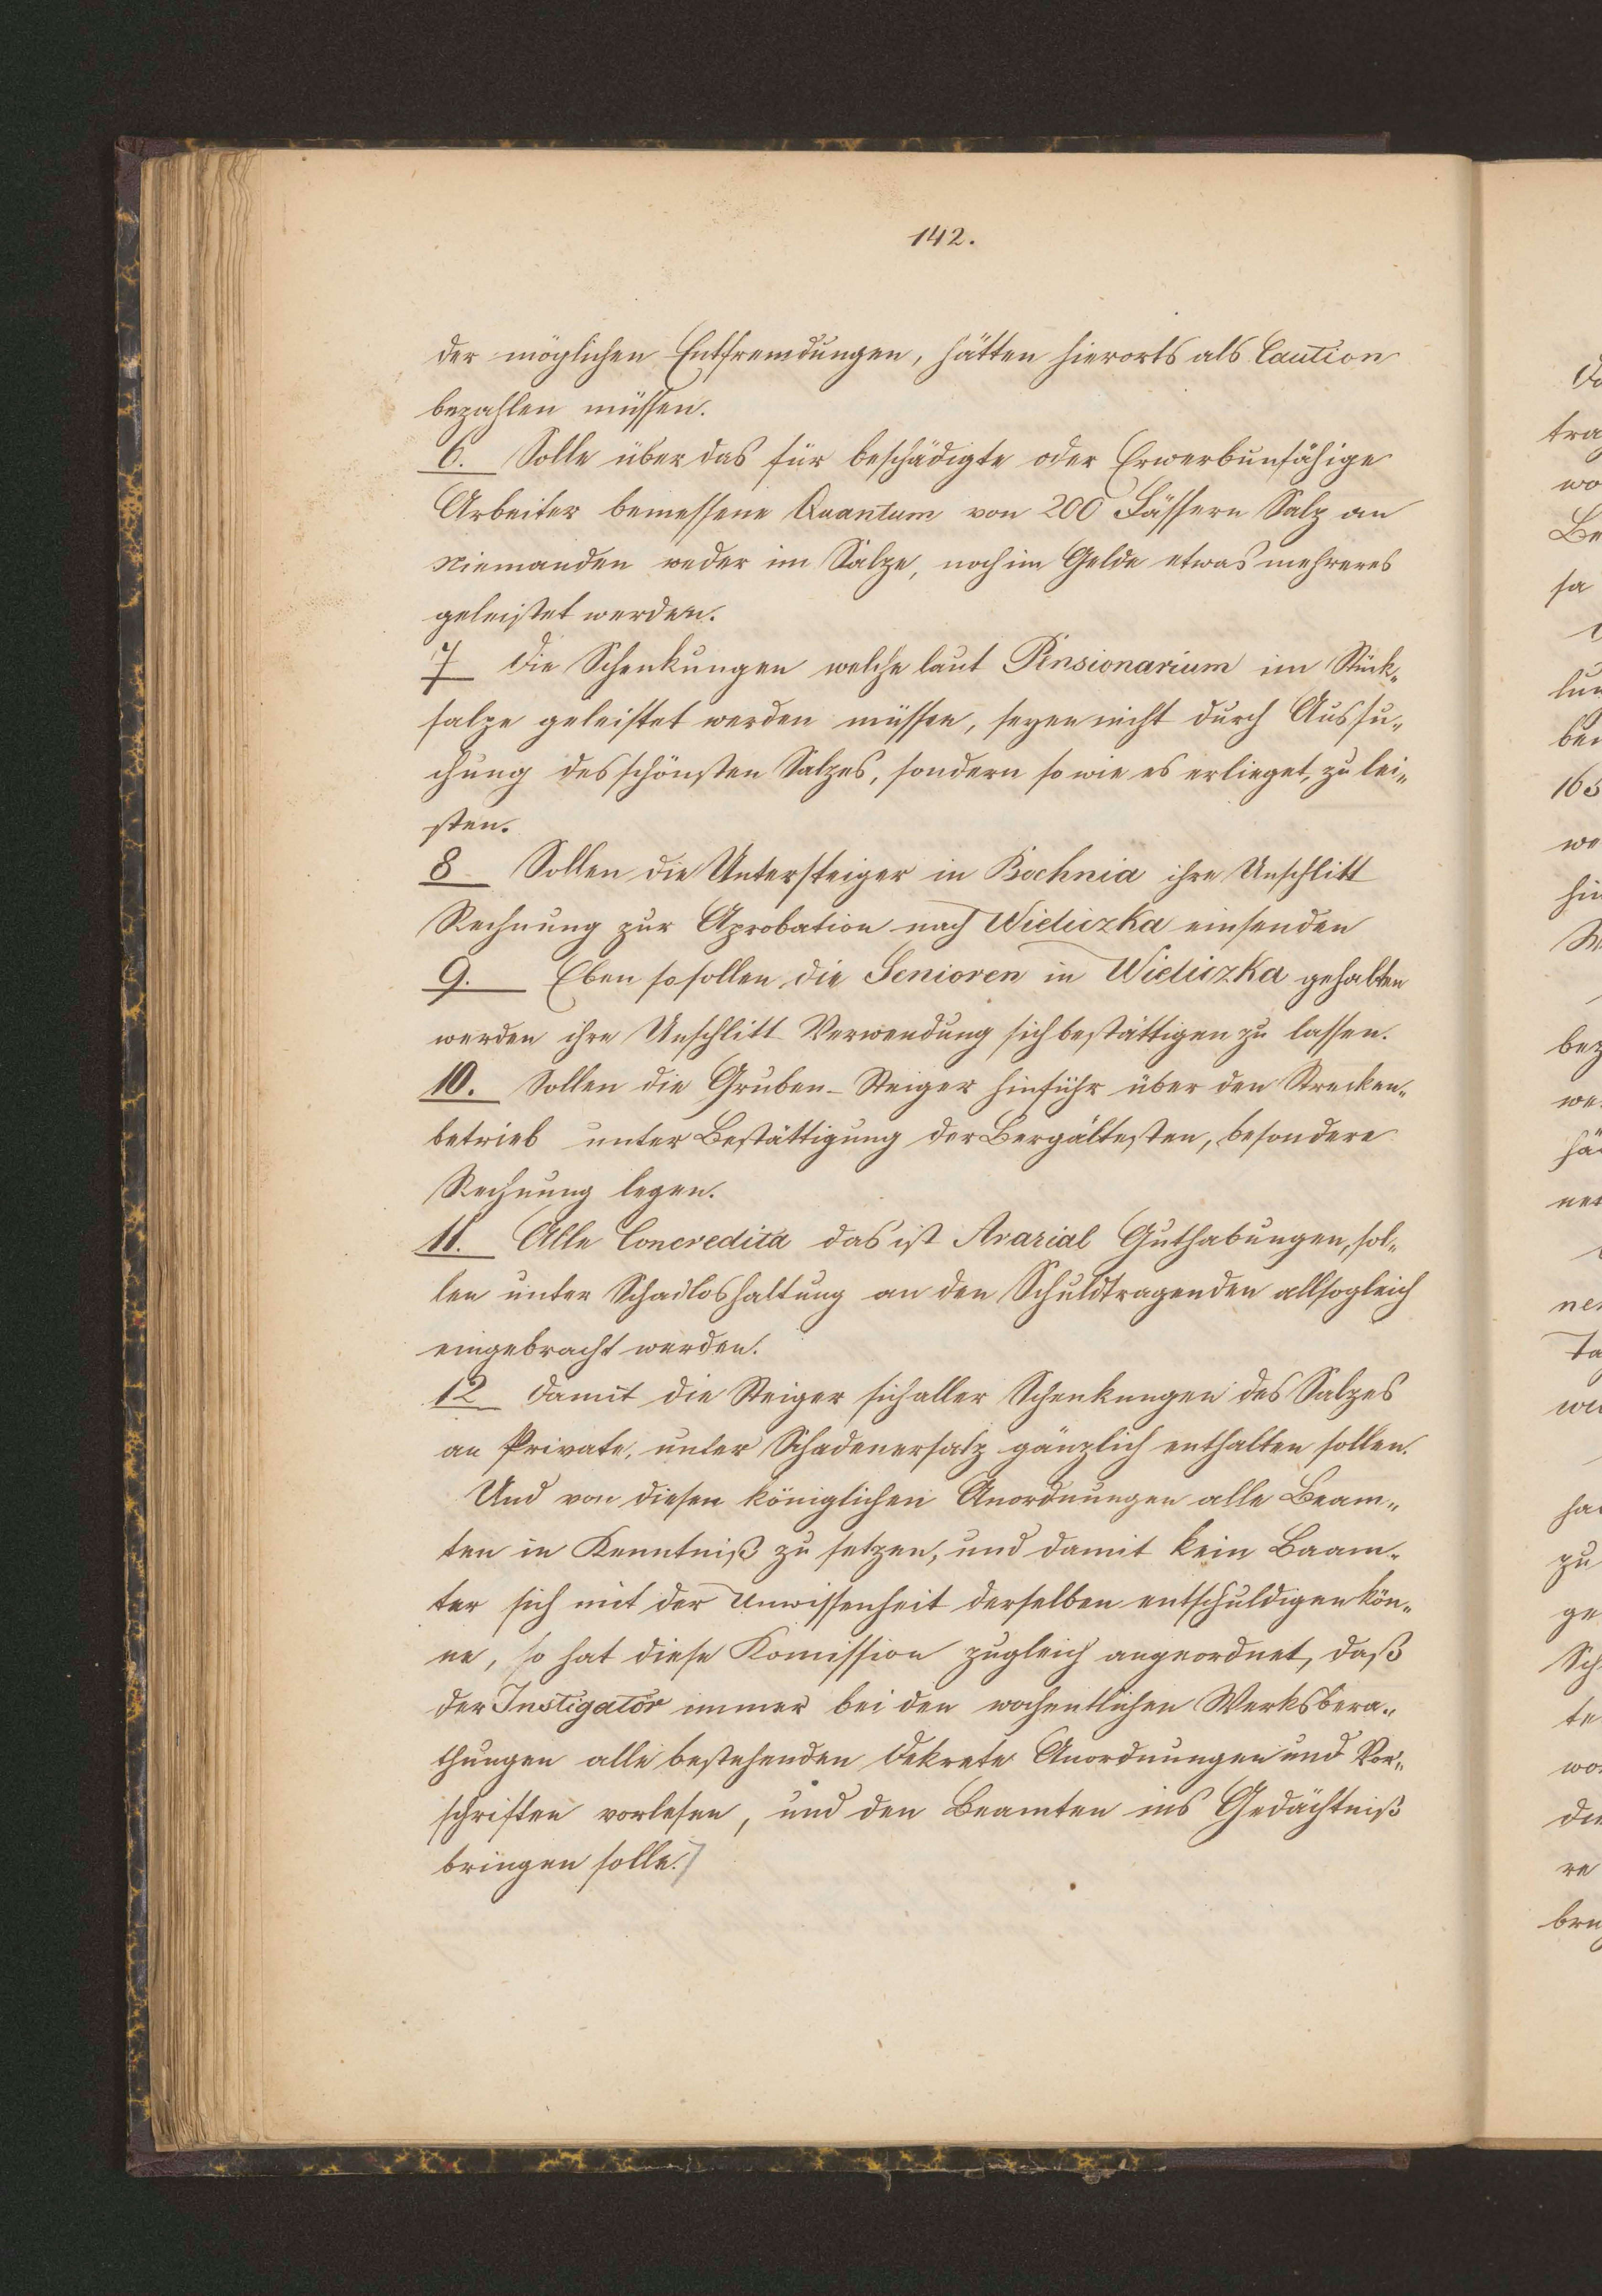 142.
der möglichen Entfremdungen, hätten hierorts als Caution
bezahlen müssen.
6. Solle über das für beschädigte oder Erwerbunfähige
Arbeiter bemessene Quantum von 200 Fässern Salz an
Niemanden weder im Salze, noch im Gelde etwas mehreres
geleistet werden.
7 Die Schenkungen welche laut Pensionarium im Stück„
salze geleistet werden müssen, seyen nicht durch Aussu„
chung des schönsten Salzes, sondern so wie es erlieget, zu lei„
sten.
8 Sollen die Untersteiger in Bochnia ihre Unschlitt
Rechnung zur Aprobation nach Wieliczka einsenden
9. Eben so sollen die Senioren in Wieliczka gehalten
werden ihre Unschlitt Verwendung sich bestättigen zu lassen.
10. Sollen die Gruben-Steiger hinführ über den Strecken„
betrieb unter Bestättigung der Bergältesten, besondere
Rechnung legen.
11. Alle Concredita das ist Ararial Guthabungen, sol„
len unter Schadloshaltung an den Schuldtragenden allsogleich
eingebracht werden.
12 Damit die Steiger sich aller Schenkungen des Salzes
an Private, unter Schadenersatz gänzlich enthalten sollen.
Und von diesen königlichen Anordnungen alle Beam„
ten in Kenntniß zu setzen, und damit kein Beam„
ter sich mit der Unwissenheit derselben entschuldigen kön„
ne, so hat diese Komission zugleich angeordnet, daß
der Instigator immer bei den wochentlichen Werksbera„
thungen alle bestehenden Dekrete Anordnungen und Vor„
schriften vorlesen, und den Beamten ins Gedächtniß
bringen solle.